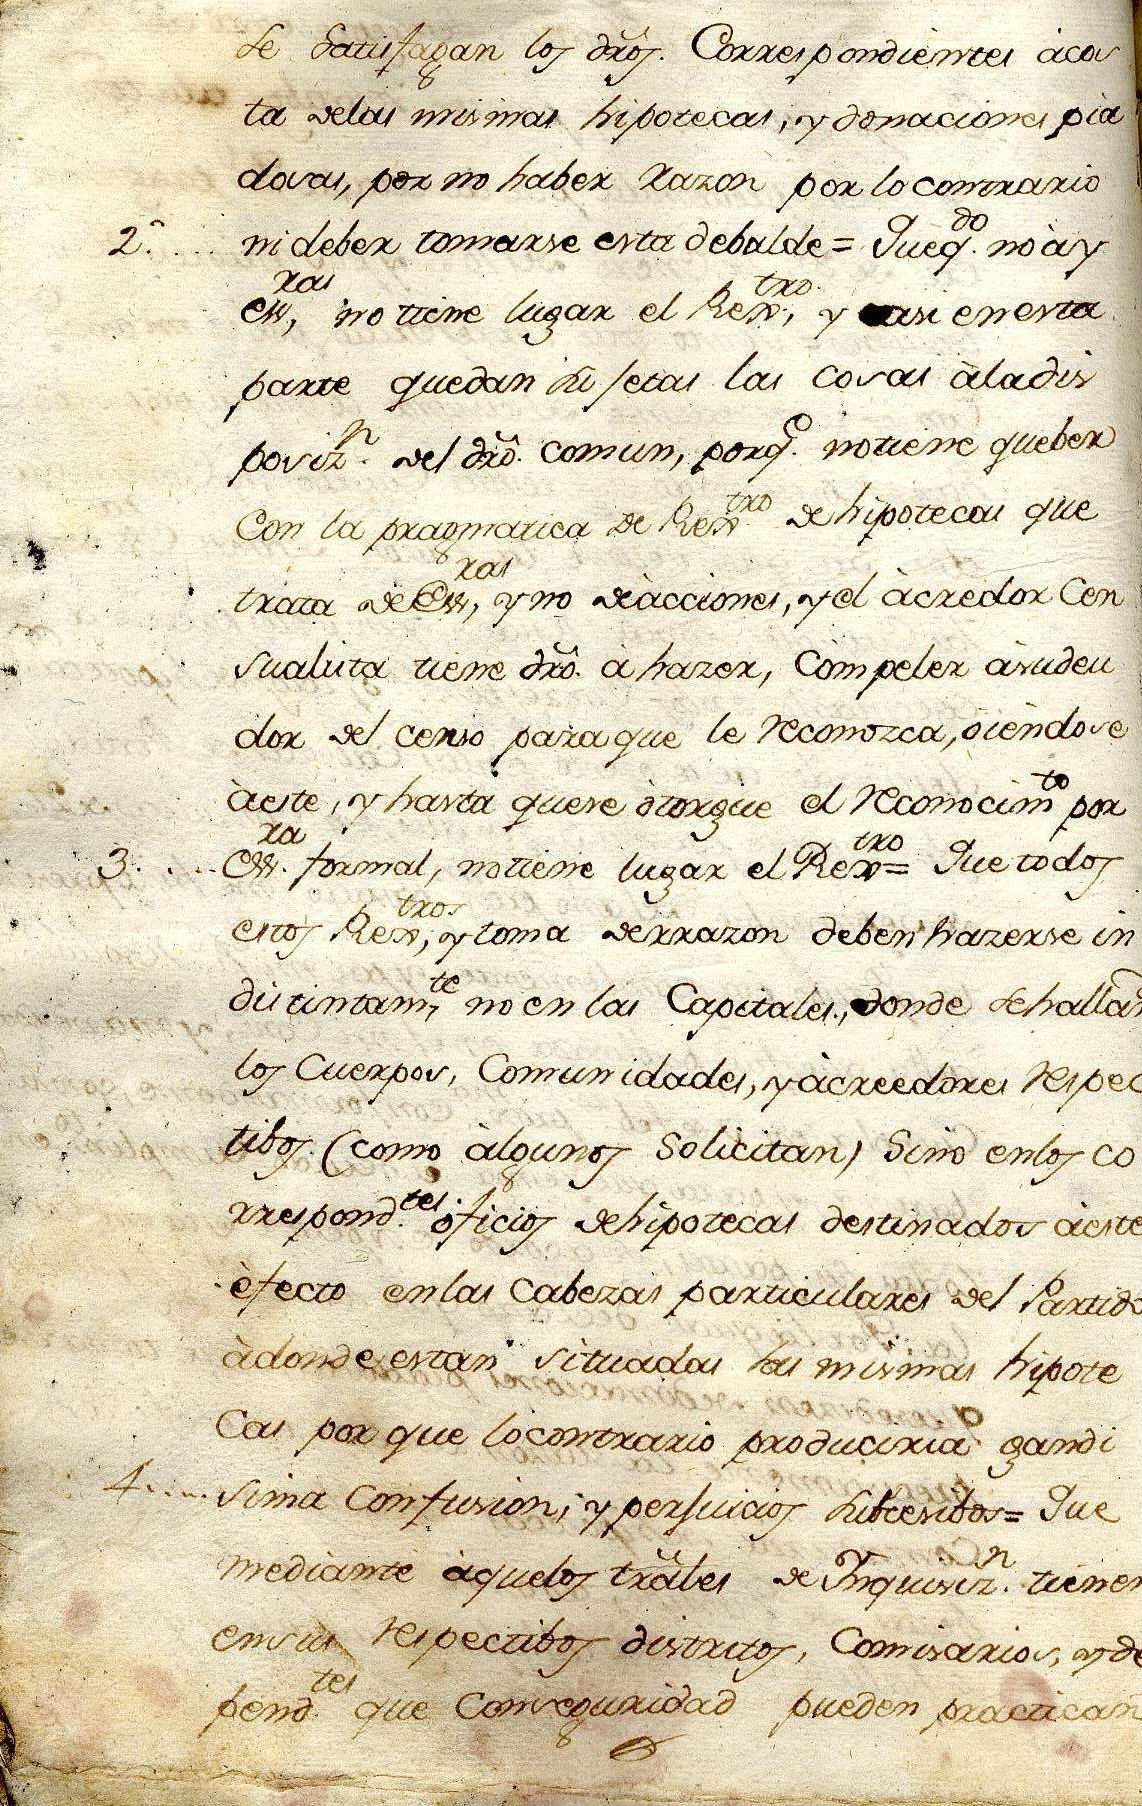 se satisfagan los dr̃os. Correspondientes àcos
ta delas mismas hipotecas, y donaciones pia
dosas, por no haber razon por lo contrario
2.º .... ni deber tomarse esta debalde = Que q.do no ày
ess.ras, no tiene lugar el Rex.tro, y asi en esta
parte quedan sujetas las cosas àla dis
posiz.n del dr̃o. comun, porq.e no tiene que ber
Con la pragmatica de Rex.tro de hipotecas que
trata de Ess.ras, y no de àcciones, y el àcredor Cen
sualista tiene dr̃o. à hazer, Compeler àsu deu
dor del censo para que le reconozca, òiendose
àeste, y hasta que se òtorgue el reconocim.to por
3. .... Ess.ra formal, no tiene lugar el Rex.tro = Que todos
estos Rex.tros, y toma de rrazon deben hazerse in
distintam.te no en las Capitales, donde se hallan
los Cuerpos, Comunidades, y àcreedores respec
tibos (como àlgunos Solicitan) Sino en los co
rrespond.tes oficios de hipotecas destinados àeste
èfecto en las Cabezas particulares del Partido
àdonde estan situadas las mismas hipote
Cas por que lo contrario produciria gandi
4..... sima Confusion, y perjuicios subcesibos = Que
mediante àquelos tr̃ales de Ynquisiz.n tienen
en sus respectibos distritos, Comisarios, y de
pend.tes que Con seguridad pueden practican